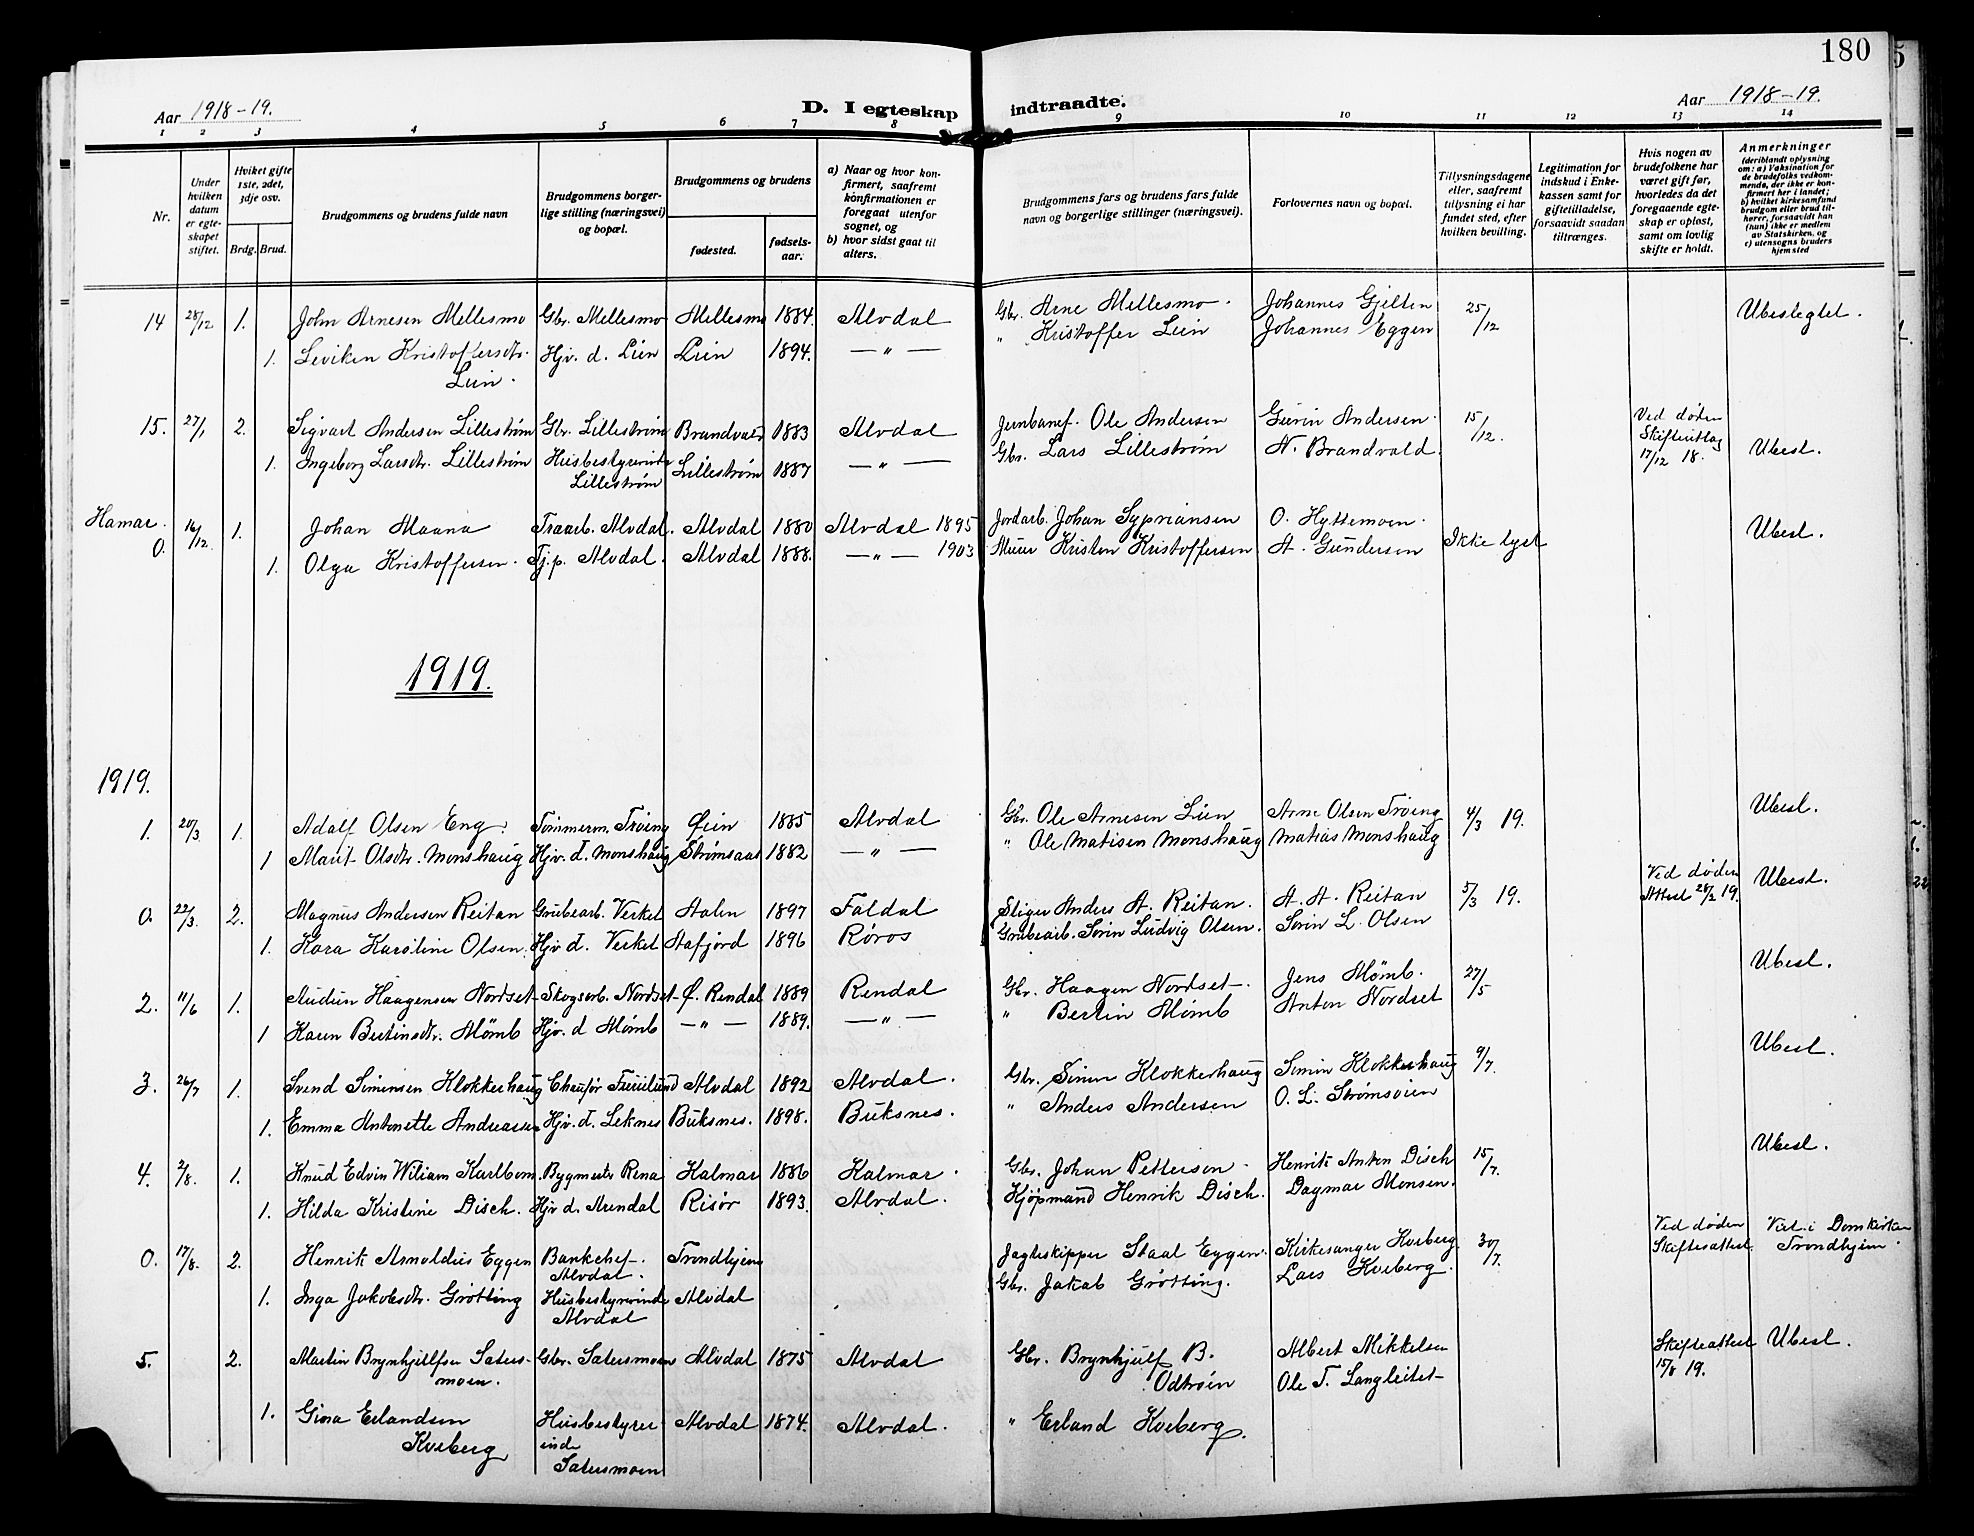 180
Aar 1918-19.
D. I egteskap indtraadte.
Aar 1918-19.
1 2 3 4 5 6 7 8 9 10 11 12 13 14
Nr.
Under hvilken datum er egteskapet stiftet.
Hvilket gifte 1ste, 2det, 3dje osv.
Brdg. Brud.
Brudgommens og brudens fulde navn
Brudgommens borgerlige stilling (næringsvei) og bopæl.
Brudgommens og brudens
fødested.
fødselsaar.
a) Naar og hvor konfirmert, saafremt konfirmationen er foregaat utenfor sognet, og
b) hvor sidst gaat til alters.
Brudgommens fars og brudens fars fulde navn og borgerlige stillinger (næringsvei).
Forlovernes navn og bopæl.
Tillysningsdagene eller, saafremt tillysning ei har fundet sted, efter hvilken bevilling.
Legitimation for indskud i Enkekassen samt for giftetilladelse, forsaavidt saadan tiltrænges.
Hvis nogen av brudefolkene har været gift før, hvorledes da det foregaaende egteskap er opløst, samt om lovlig skifte er holdt.
Anmerkninger
(deriblandt oplysning om: a) Vaksination for de brudefolks vedkommende, der ikke er konfirmert her i landet; b) hvilket kirkesamfund brudgom eller brud tilhører, forsaavidt han (hun) ikke er medlem av Statskirken, og c) utensogns bruders hjemsted
14 28/12 1. John Arnesen Mellesmo Gbr. Mellesmo Mellesmo 1884. Alvdal Gbr. Arne Mellesmo. Johannes Gjelten 25/12 Ubeslegtet.
1. Leviken Kristoffersdtr. Lien. Hjv. d. Lien Lien 1894. — " — " Kristoffer Lien Johannes Eggen
15. 27/1 2. Sigvart Andersen Lillestrøm Gbr. Lillestrøm Brandvald 1883 Alvdal Jernbanef. Ole Andersen Gurin Andersen. 15/12. Ved døden Skifteutlag 17/12 18. Ubesl.
1. Ingeborg Larsdtr. Lillestrøm Husbestyrerinde Lillestrøm Lillestrøm 1887 — " — Gbr. Lars Lillestrøm N. Brandvold.
Hamar. 0. 16/12 1. Johan Maana Traarb. Alvdal. Alvdal 1880 Alvdal 1895 Jordarb. Johan Sypriansen O. Hyttemoen. Ikke lyst Ubesl.
1. Olga Kristoffersen. Tj.p. Alvdal. Alvdal 1888. — " — 1903 Murer Kristen Kristoffersen A. Gundersen
1919.
1919.
1. 20/3 1. Adolf Olsen Eng. Tømmerm. Trøeng Øien 1885 Alvdal Gbr. Ole Arnesen Lien Arne Olsen Trøeng 4/3 19. Ubesl.
1 Marit Olsdtr. Monshaug Hjv. d. Monshaug Strømsaas 1882 — " — " Ole Matisen Monshaug Matias Monshaug
0. 22/3. 2. Magnus Andersen Reitan Grubearb. Verket Aalen 1897 Foldal Stiger Anders A. Reitan. A. A. Reitan 5/3 19. Ved døden Attest 28/2 19. Ubesl.
1. Kara Karoline Olsen. Hjv. d. Verket Aafjord 1896 Røros Grubearb. Sørin Ludvig Olsen. Sørin L. Olsen
2. 11/6 1. Audun Haagensen Nordset Skogsarb. Nordset Ø. Rendal 1889 Rendal Gbr. Haagen Nordset. Jens Mømb. 27/5 Ubesl.
1 Karen Bertinsdtr. Mømb Hjv. d Mømb — " — 1889. — " — " Bertin Mømb Anton Nordset
3. 26/7 1. Svend Simensen Klokkerhaug Chaufør Alvdal 1892 Alvdal. Gbr. Simen Klokkerhaug Simon Klokkerhaug 9/7. Ubesl.
1. Emma Antonette Andreassen Hjv. d. Leknes Buksnes. 1898. Buksnes. " Anders Andersen O. L. Strømsøien
4. 2/8. 1. Knud Edvin Wiliam Karlbom. Bygmester Rena Kalmar 1886 Kalmar. Gbr. Johan Pettersen. Henrik Anton Disch 15/7. Ubesl.
1. Hilda Kristine Disch. Hjv. d. Arendal Risør 1893. Alvdal. Kjøpmand Henrik Disch. Dagmar Monsen.
0. 17/8. 2. Henrik Arnoldus Eggen Bankchef. Alvdal. Trondhjem Jagteskipper Staal Eggen. Kirkesanger Kveberg. 30/7. Ved døden Skifteattest. Viet i Domkirken Trondhjem.
1. Inga Jakobsdtr. Grøtting Husbestyrerinde Alvdal Alvdal Gbr. Jakob Grøtting. Lars Kveberg.
5. 2. Martin Brynhjulfsen Satersmoen. Gbr. Satersmoen Alvdal 1875 Alvdal Gbr. Brynhjulf B. Odtrøen Albert Mikkelsen Skifteattest 15/8 19. Ubesl.
1. Gina Erlandsen Kveberg Husbestyrerinde Satersmoen Alvdal 1874. Alvdal. " Erland Kveberg. Ole T. Langleitet